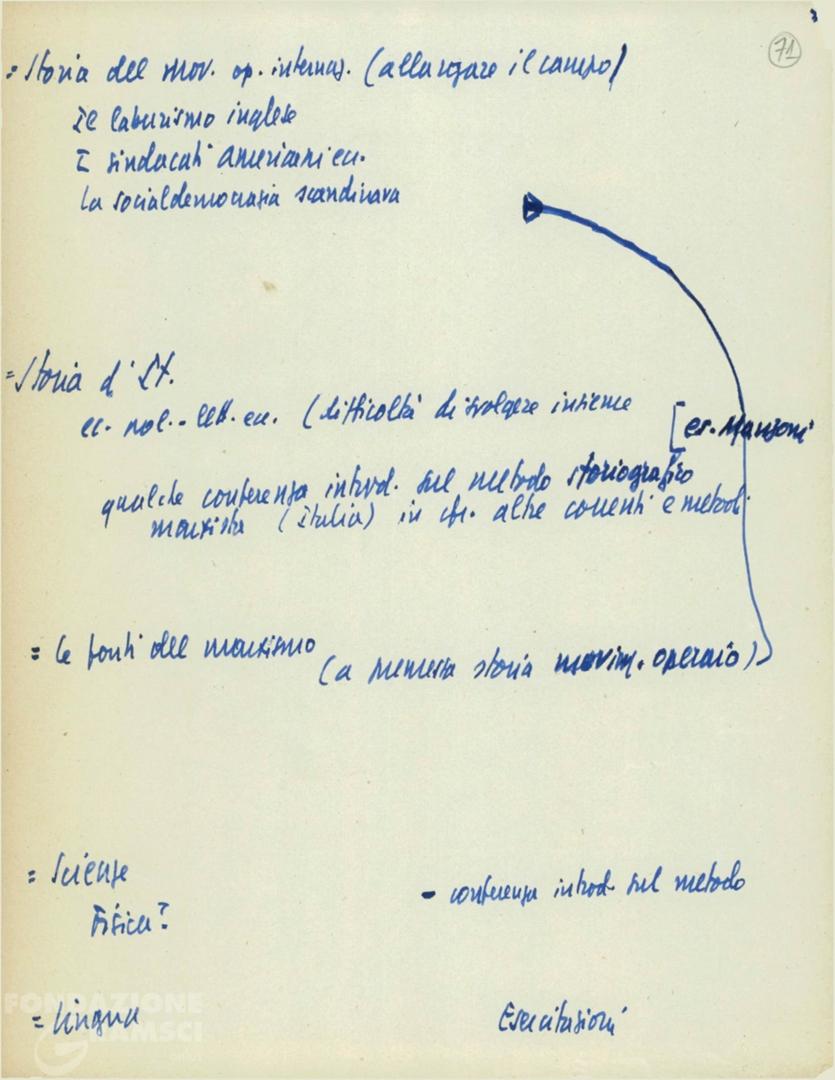 3
71
= Storia del mov. op. internaz. (allargare il campo)
Il laburismo inglese
I sindacati americani ecc.
La socialdemocrazia scandinava
= Storia d'It.
ec. pol. - lett. ecc. (difficoltà di svolgere insieme
[es. Manzoni
qualche conferenza introd. sul metodo storiografico
marxista (Italia) in cfr. altre correnti e metodi
= Le fonti del marxismo
(a premessa storia movim. operaio)
= Scienze
Fisica?
- conferenza introd. sul metodo
= Lingua
Esercitazioni
FONDAZIONE
GRAMSCI